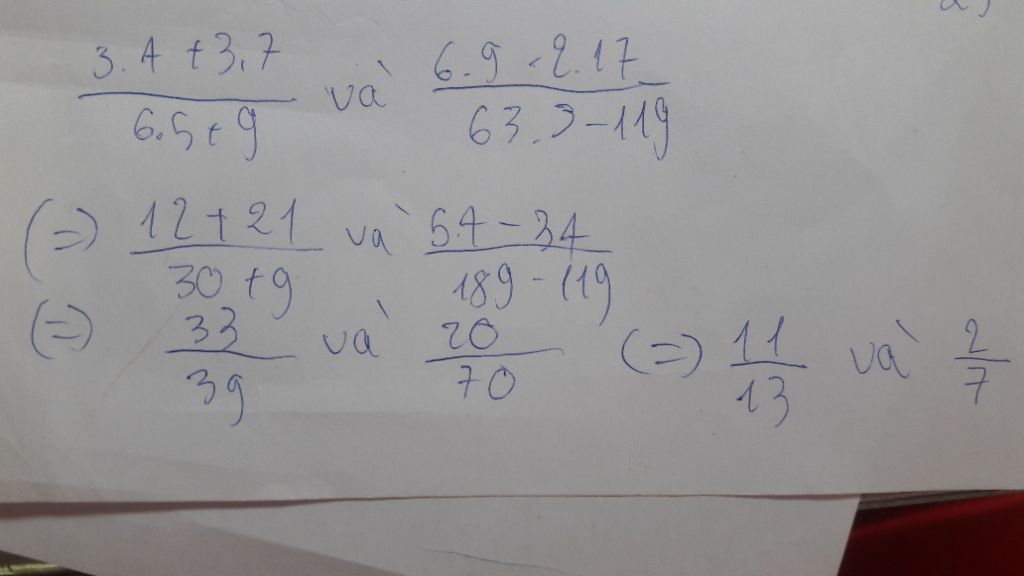 3.4 + 3.7 / 6.5 + 9 và 6.9 - 2.17 / 63.3 - 119
(=) 12 + 21 / 30 + 9 và 54 - 34 / 189 - 119
(=) 33 / 39 và 20 / 70 (=) 11 / 13 và 2 / 7